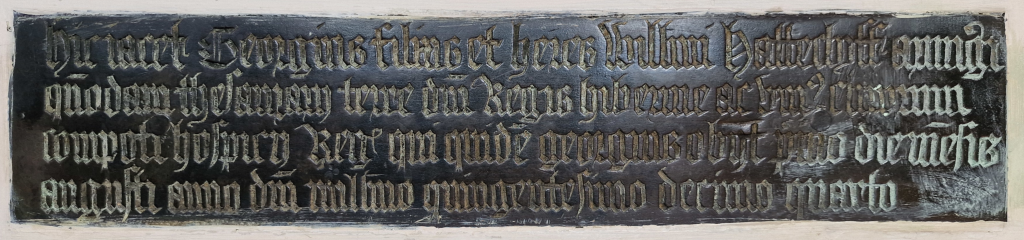 Hic iacet Georgius filius et heres Willmi Hatteclyff armigi
quōdam thesaurarij terre dm̄ Regis hibernie ac
compoti hospicij Reg qui quidē georgius obijt die mēsis
augusti anno dm̄ millmo quingentesimo decimo quarto